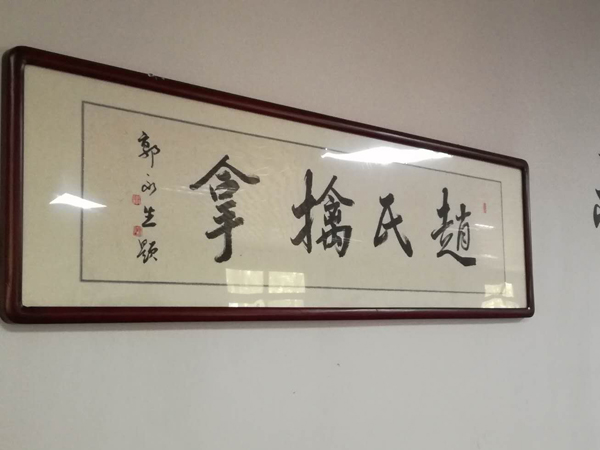 趙氏擒拿
郭永生題